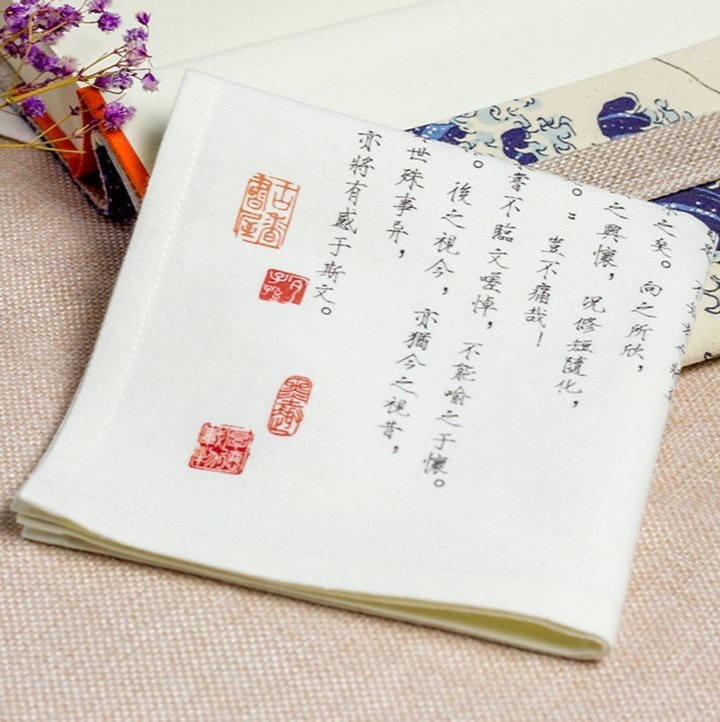 之矣。向之所欣，
之興懷，況修短隨化，
。”豈不痛哉！
嘗不臨文嗟悼，不能喻之于懷。
。後之視今，亦猶今之視昔，
世殊事异，
亦將有感于斯文。